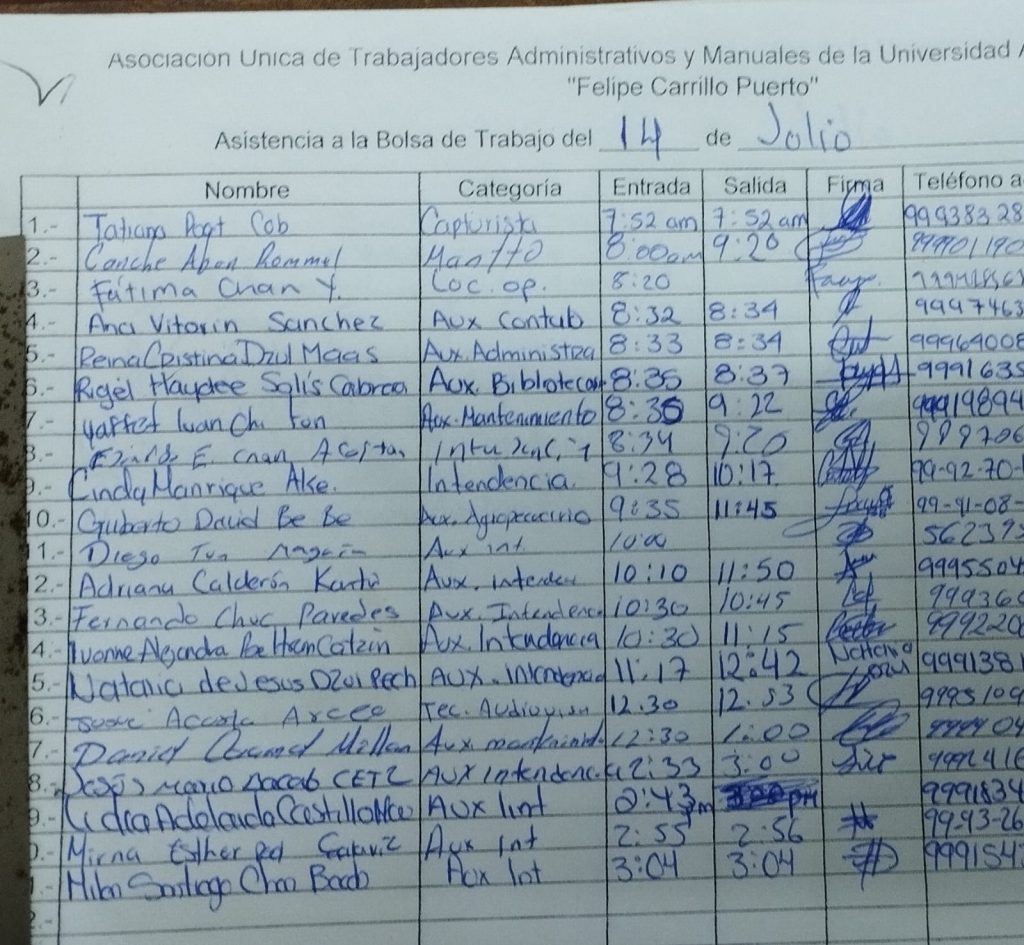 Asociación Unica de Trabajadores Administrativos y Manuales de la Universidad
"Felipe Carrillo Puerto"
Asistencia a la Bolsa de Trabajo del 14 de Julio
Nombre Categoría Entrada Salida Firma Teléfono a
1.- Tatiana Cob Capturista 7:52 am 7:52 am 99938328
2.- Canche Rommel Mantto 8:00am 9:20 999901190
3.- Fátima Chan Y. Loc. op. 8:20
4.- Ana Vitorin Sanchez Aux Contab 8:32 8:34 9997463
5.- Reina Cristina Dzul Maas Aux. Administra 8:33 8:34 99964008
6.- Rigel Haydee Solís Cabrera Aux. Bibliotecar 8:35 8:37 9991635
7.- Yaffet Iuan Chi Aux. Mantenimiento 8:36 9:22 99919894
8.- E. Chan Acosta 8:34 9:20 999706
9.- Cindy Manrique Ake. Intendencia. 9:28 10:17 99-92-70-
10.- David Be Be Aux. Agropecuario 9:35 11:45 99-91-08-
1.- Diego Aux int. 10:00 562393
2.- Adriana Calderón Aux. intenden 10:10 11:50 9995504
3.- Fernando Chuc Paredes Aux. Intendenc 10:30 10:45 999360
4.- Ivonne Alejandra Catzin Aux. Intendencia 10:30 11:15 9992208
5.- Natalia de Jesus Dzul Pech AUX. Intendencia 11:17 12:42 Natalia Dzul 9991381
6.- Arceo Tec. Audiovisu 12.30 12.53 9995109
7.- David Millan Aux. 12:30 1:00 999904
8.- Jesús Mario CETZ AUX Intendenc. 12:33 3:00 9992416
9.- Lidia Adelaida Castillo AUX Iint 2:43pm 9991834
0.- Mirna Esther Aux Int 2:55 2:56 99-93-26
1.- Santiago Aux Int 3:04 3:04 9991543
2.-